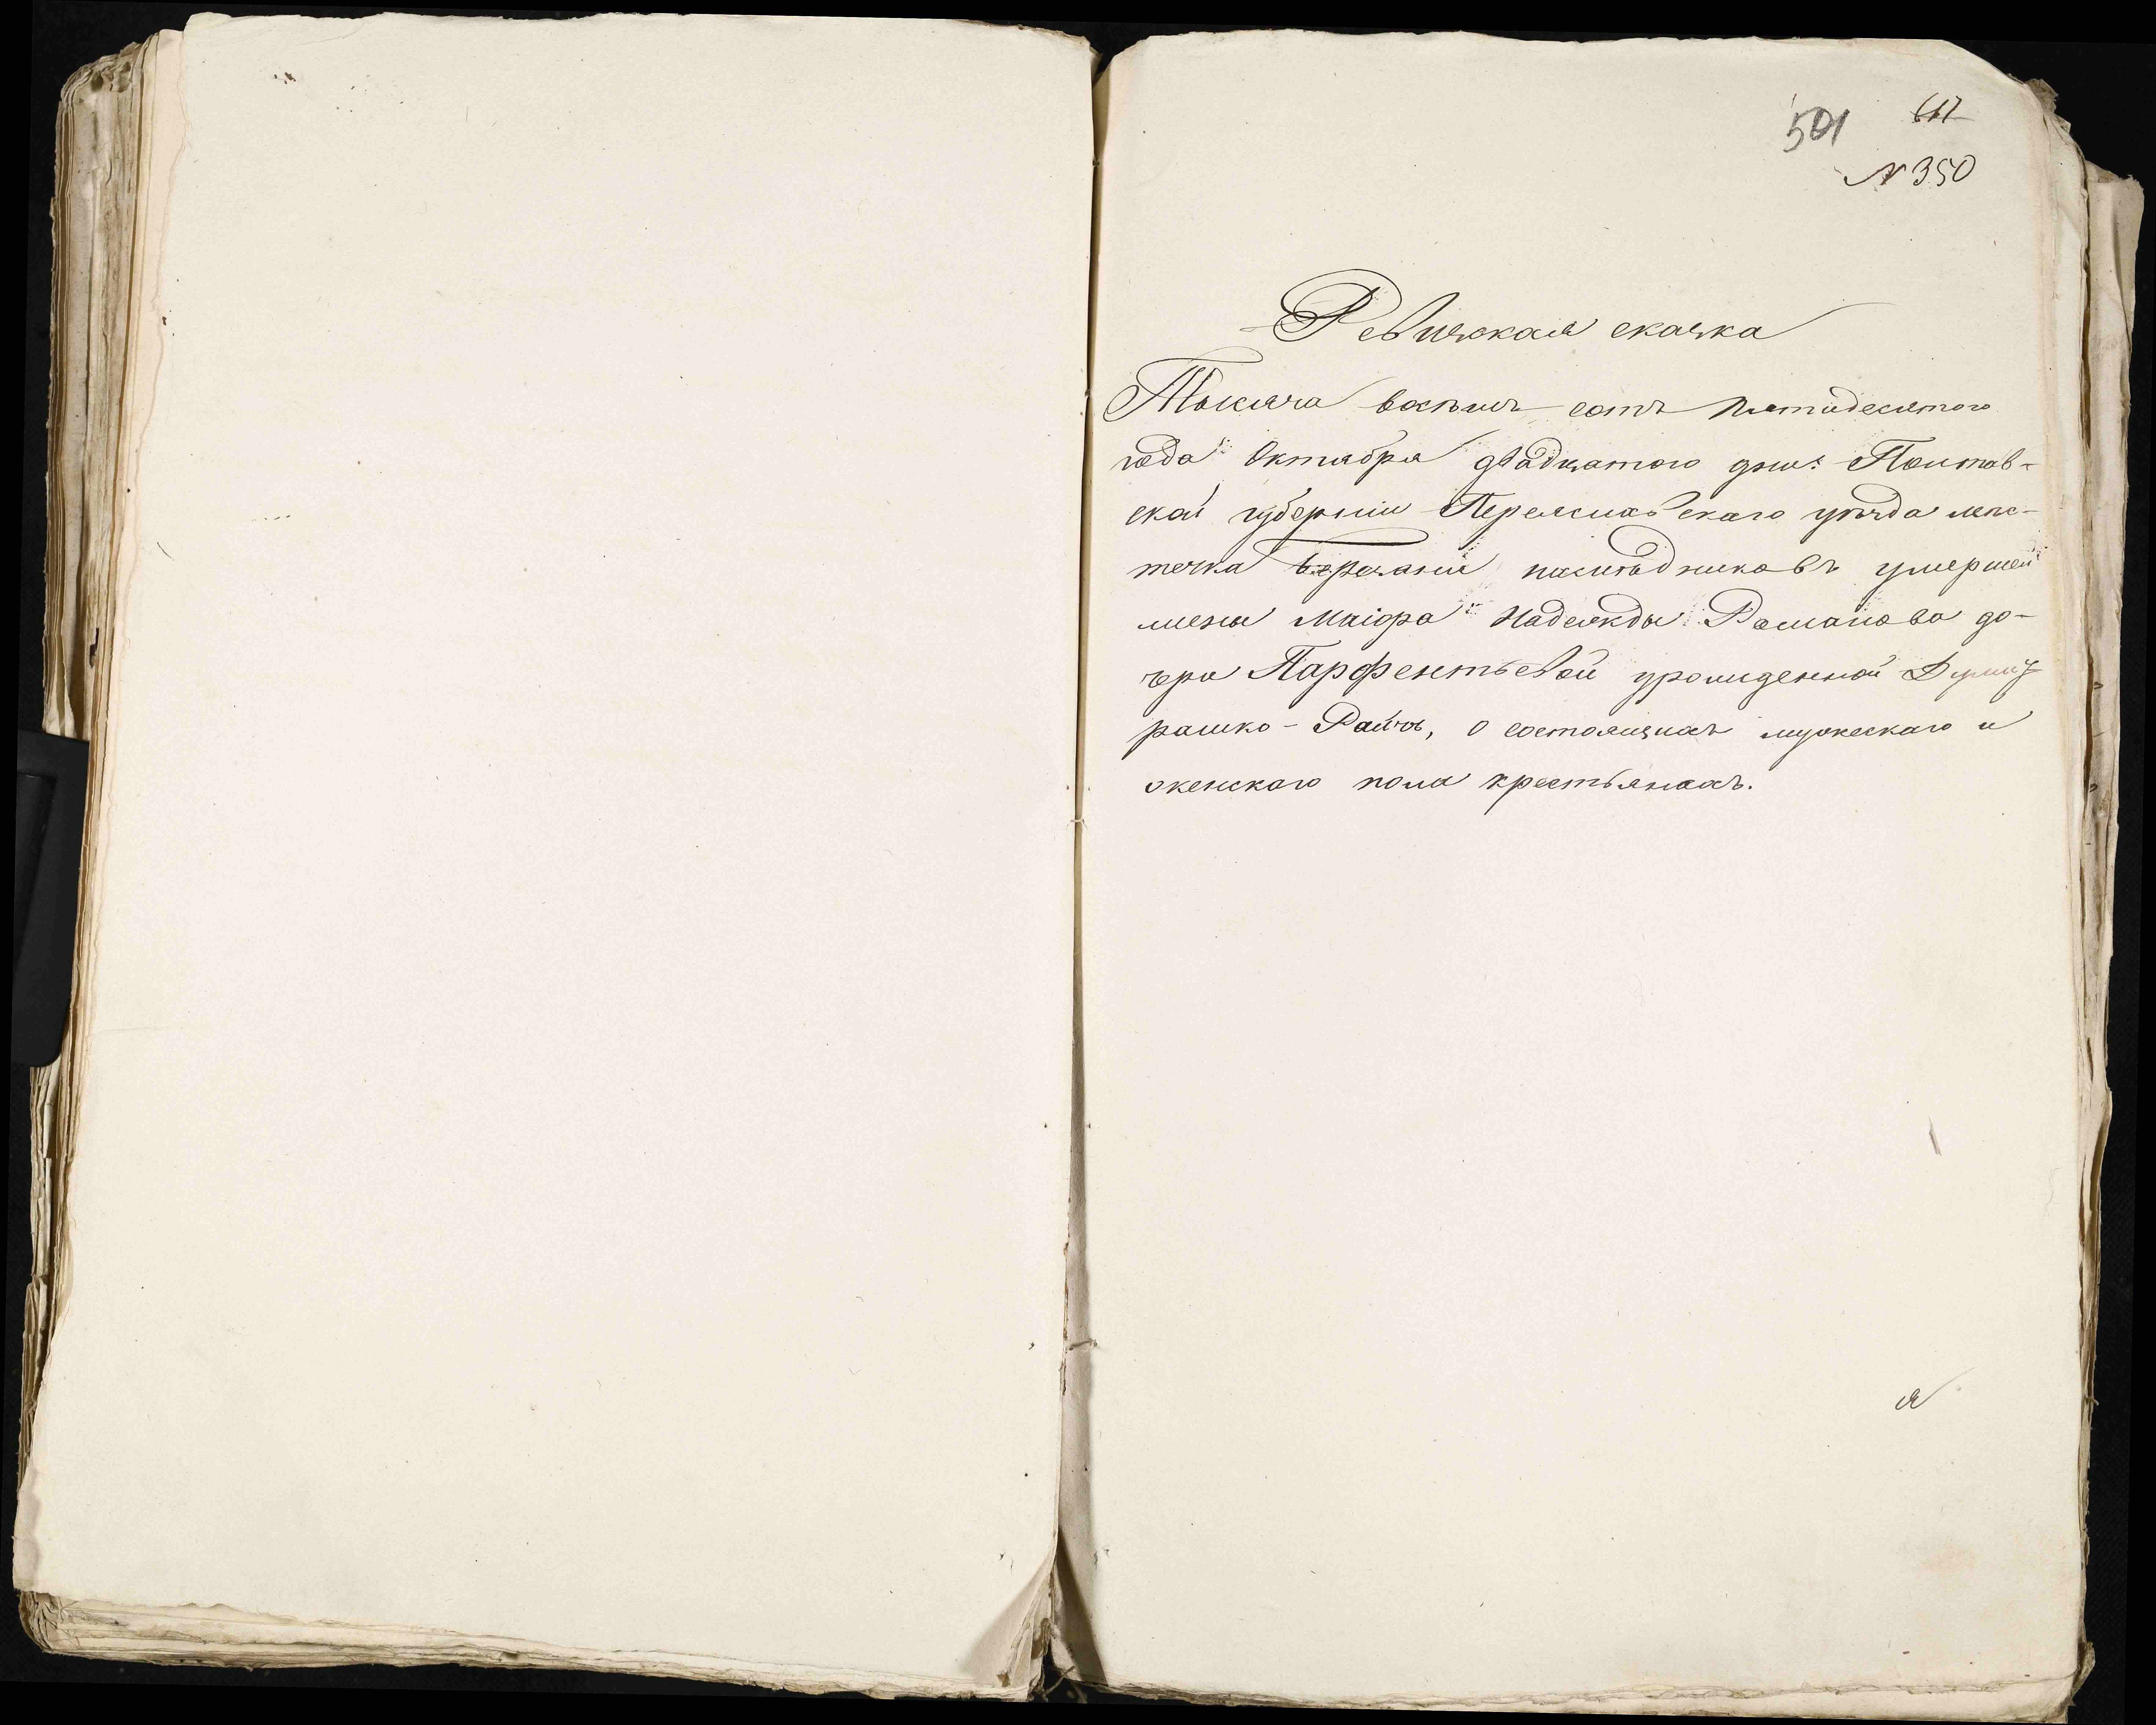 501 617
№ 350
Ревизская сказка
Тысяча восемь сотъ пятидесятого
года Октября двадцатого дня: Полтав-
ской губерніи Переяславскаго уѣзда мѣс-
течка Березани наслѣдниковъ умершей
жены Маіора Надежды Романова до-
чери Парфентьевой урожденной Думит
рашко-Райчъ, о состоящихъ мужескаго и
женскаго пола крестьянахъ.